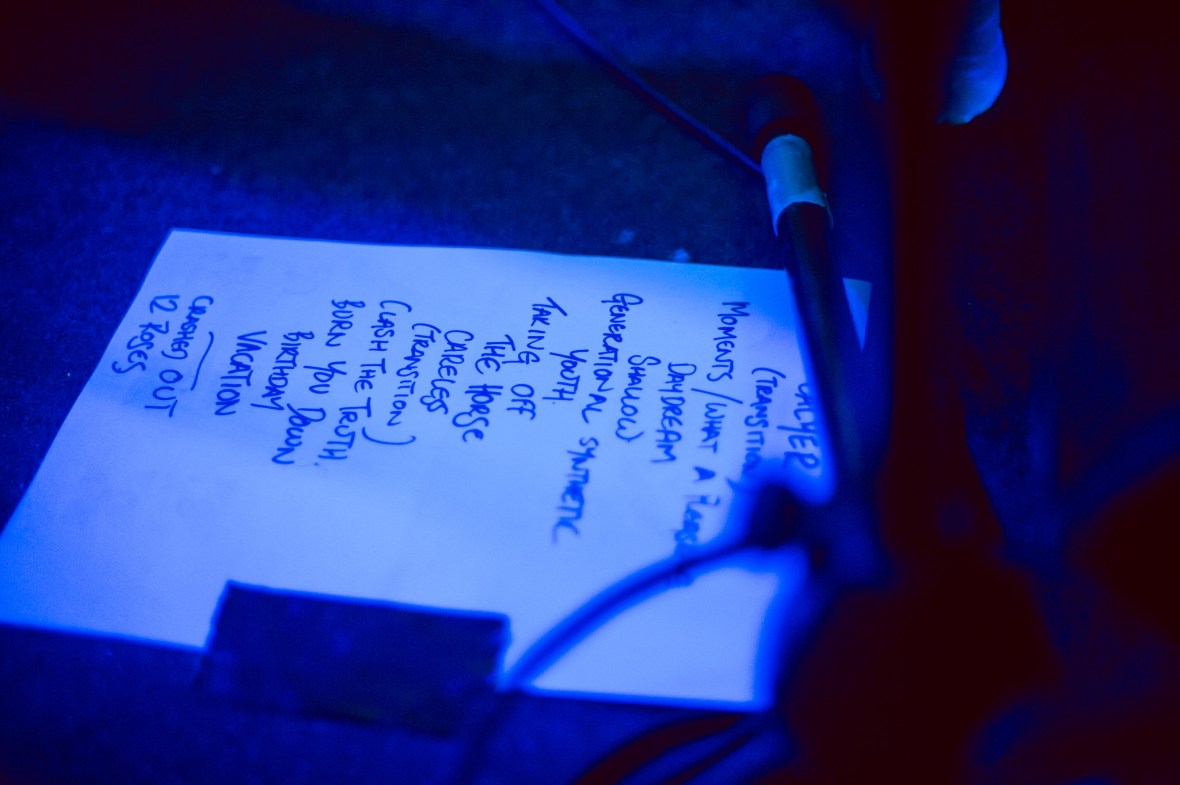 (TRANSITION
MOMENTS / WHAT A
DAYDREAM
SHALLOW
GENERATIONAL SYNTHETIC
YOUTH.
TAKING OFF
THE HORSE
CARELESS
(TRANSITION)
CLASH THE TRUTH.
BURN YOU DOWN
BIRTHDAY
VACATION
CRASHED OUT
12 ROSES